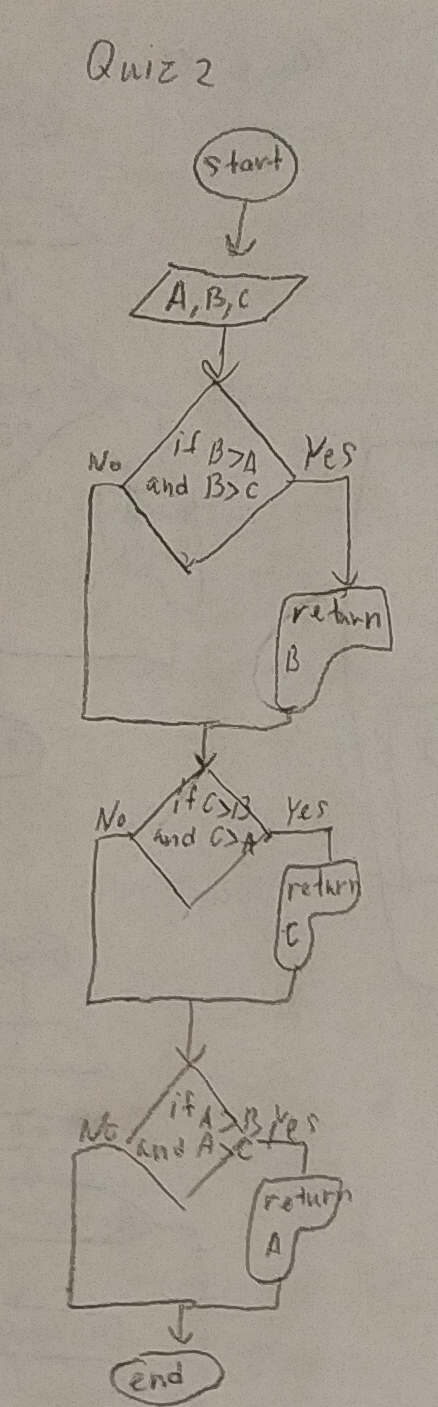 Quiz 2
start
A, B, C
if B>A
and B>C
No
Yes
return
B
if C>B
and C>A
No
Yes
return
C
if A>B
and A>C
No
Yes
return
A
end